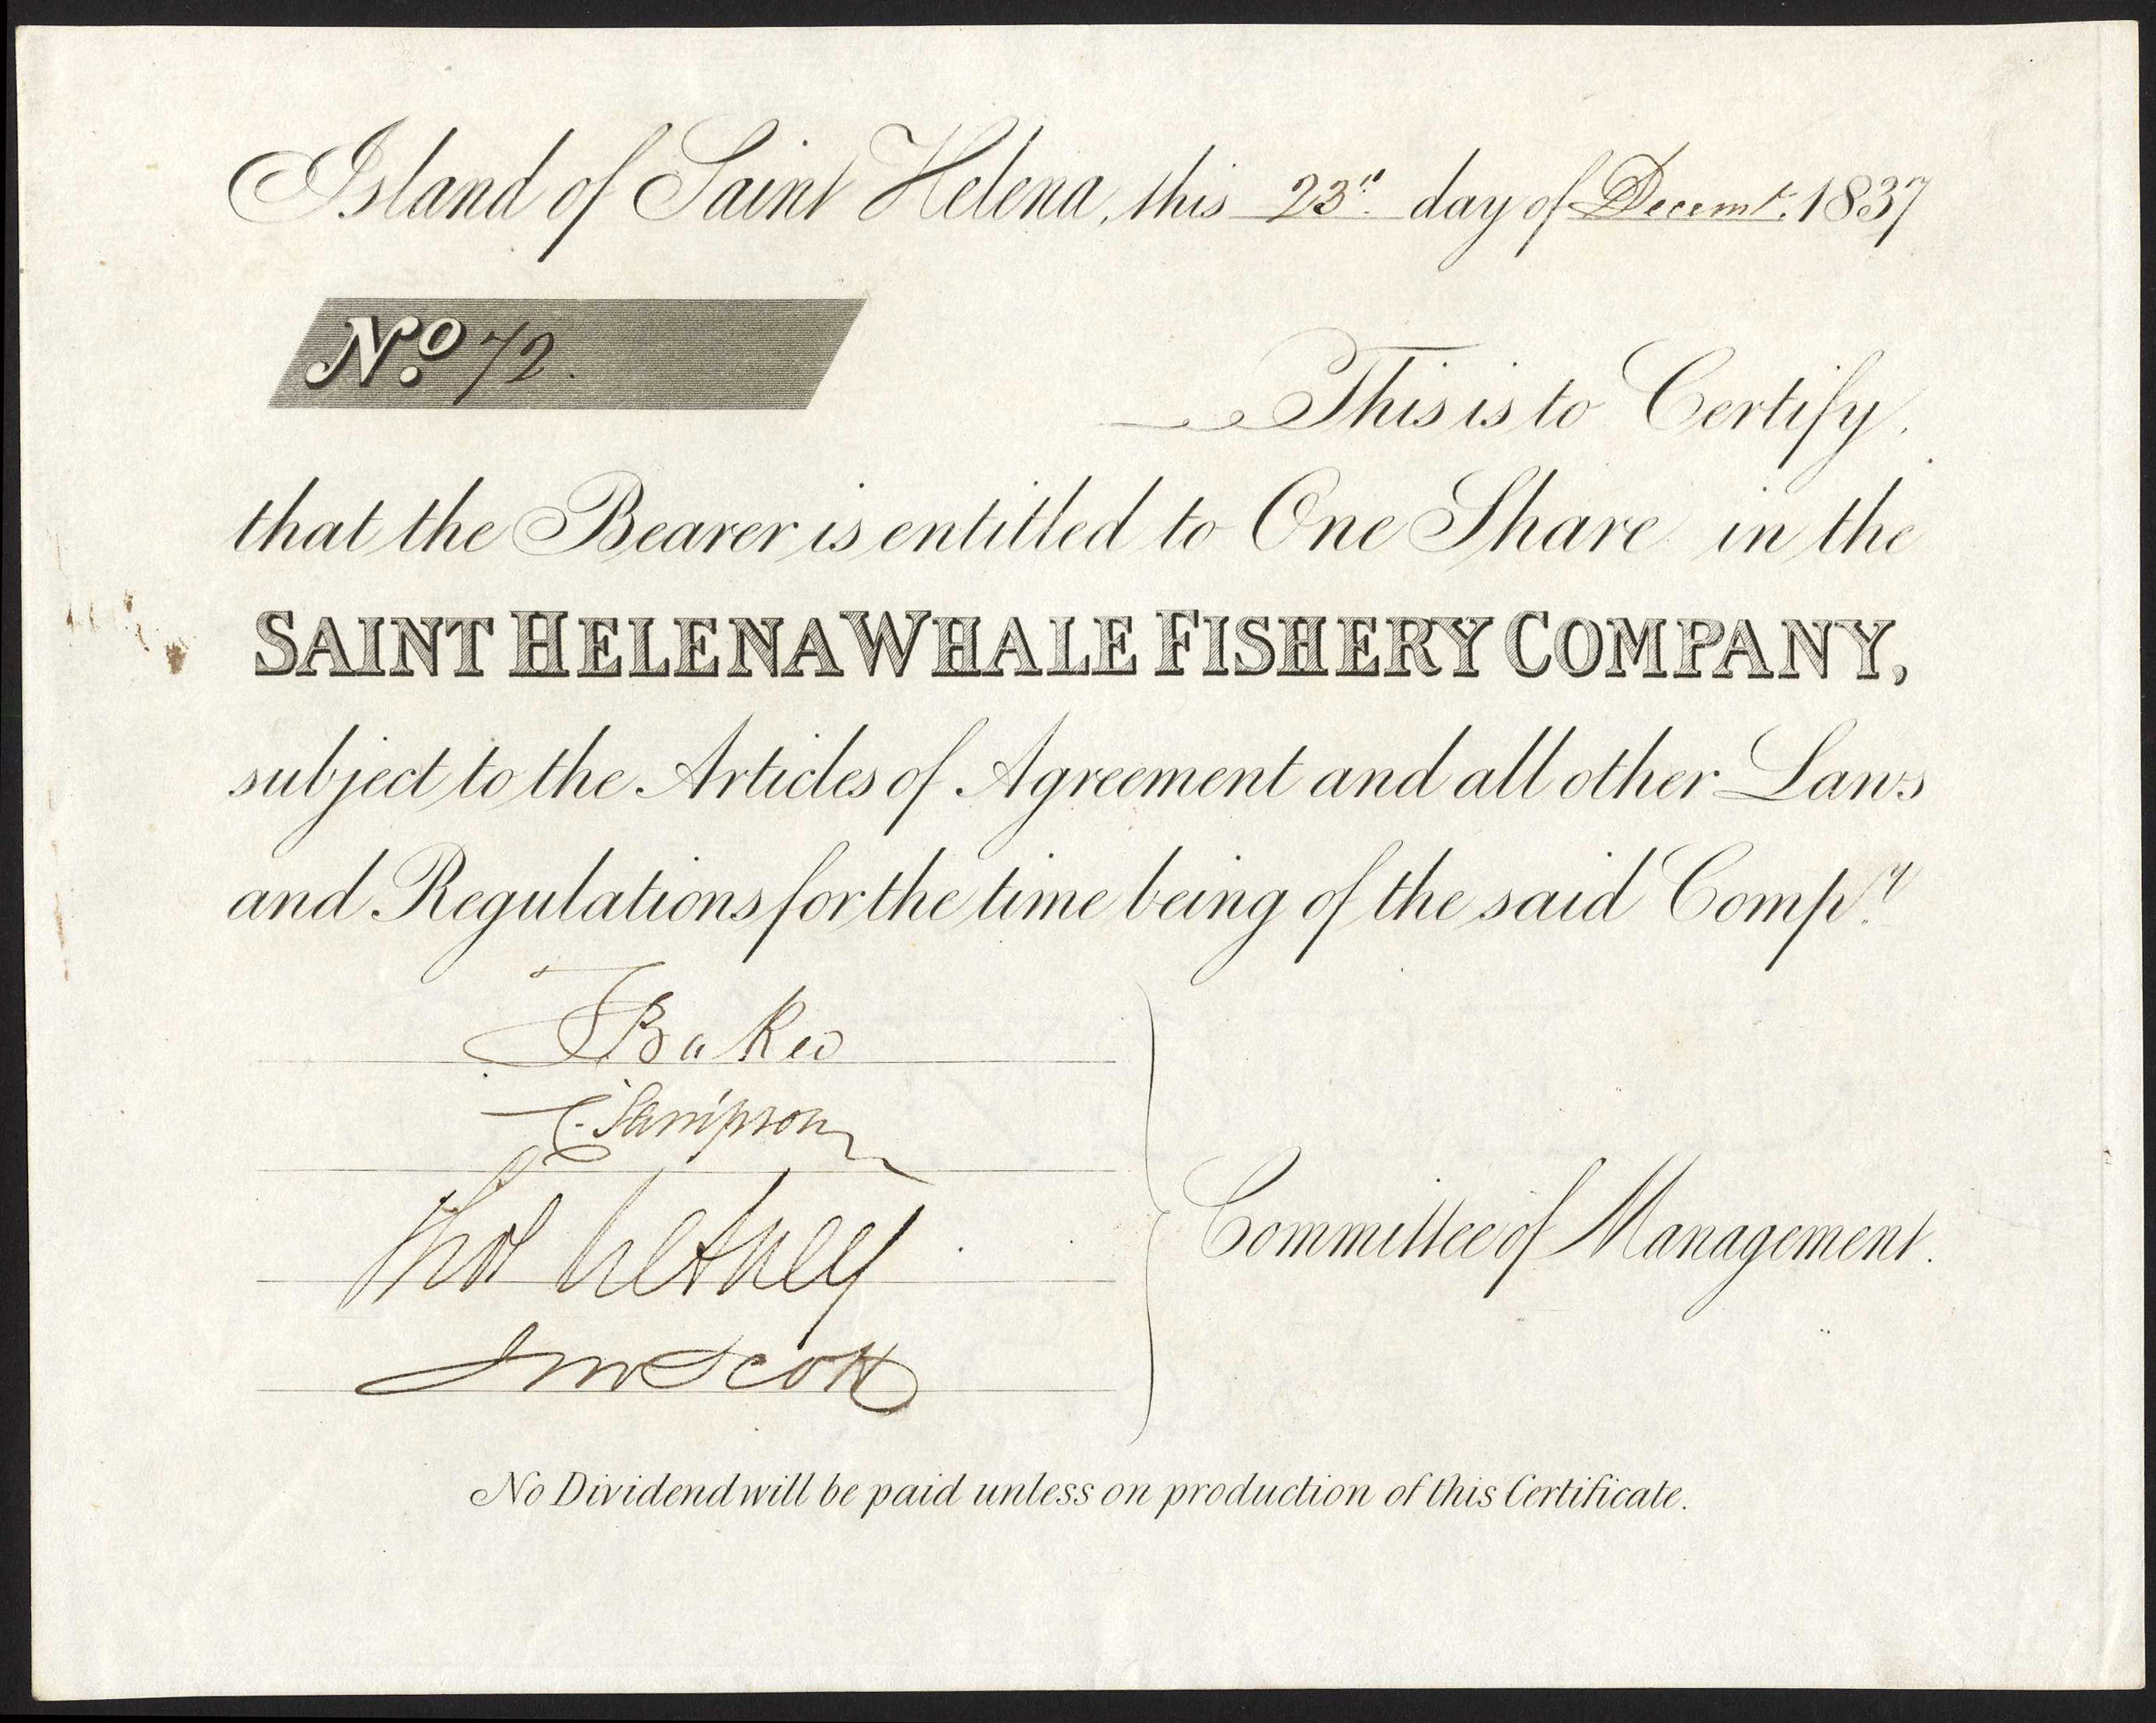 Island of Saint Helena, this 23d. day of Decemr. 1837
No. 72.
This is to Certify,
that the Bearer is entitled to One Share in the
SAINT HELENA WHALE FISHERY COMPANY,
subject to the Articles of Agreement and all other Laws
and Regulations for the time being of the said Compy.
Baker
Sampson
Thos
Scott
Committee of Management.
No Dividend will be paid unless on production of this Certificate.